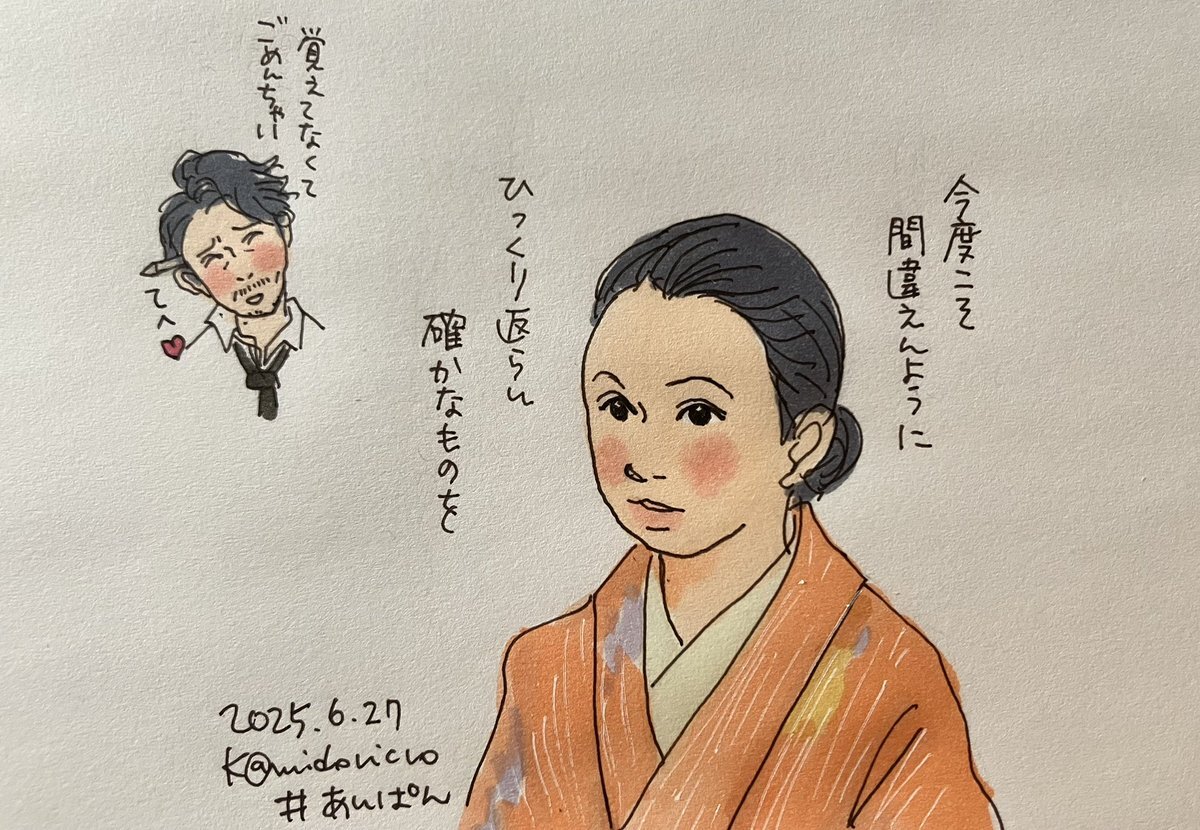 今度こそ
間違えんように
ひっくり返らん
確かなものを
覚えてなくて
ごめんちゃい
てへ
2025.6.27
K@midoricuo
#あんぱん